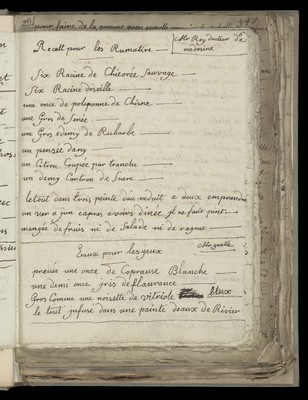 pour faire de la
Recett pour les Rumatire
Mr Roy docteur De
medecine
Six Racine de Chicorée Sauvage
Six Racine doiseille
une once de polipome de Chesne
une Gros de Senée
une Gros édemy de Rubarbe
un pensée
un Citron Coupée par tranche
un demy Cantron de Sucre
le tout dans trois peinte dau reduit a deux emprendre
un ver a jun capres avoirs dinée, il ne faut point
mangée de fruis ni de Salade ni de ragout
Eaux pour les yeux
prenée une once de Coprause Blanche
une demi once jris de flaurance
Gros Comme une noisette de vitriole bleux
le tout infusé dans une painte deaux de Rivier